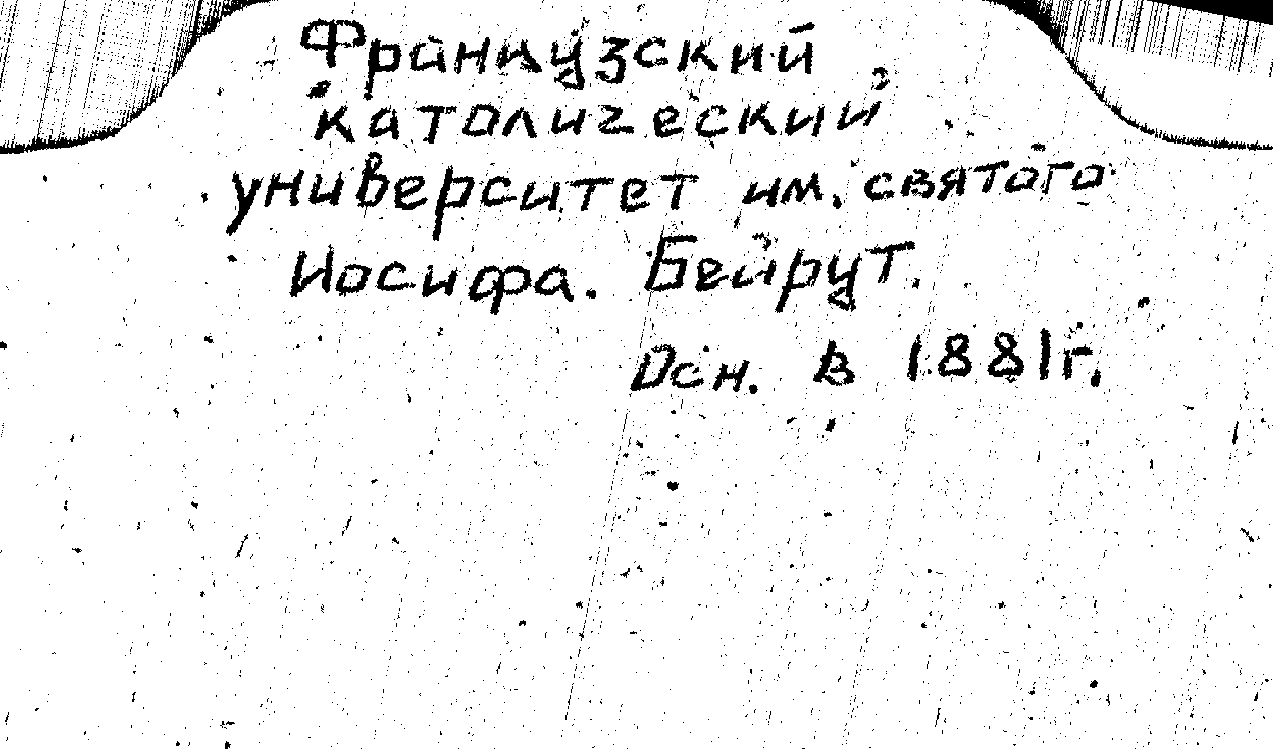 Французский
католический
университет им. святого
Иосифа. Бейрут.
Осн. в 1881г.